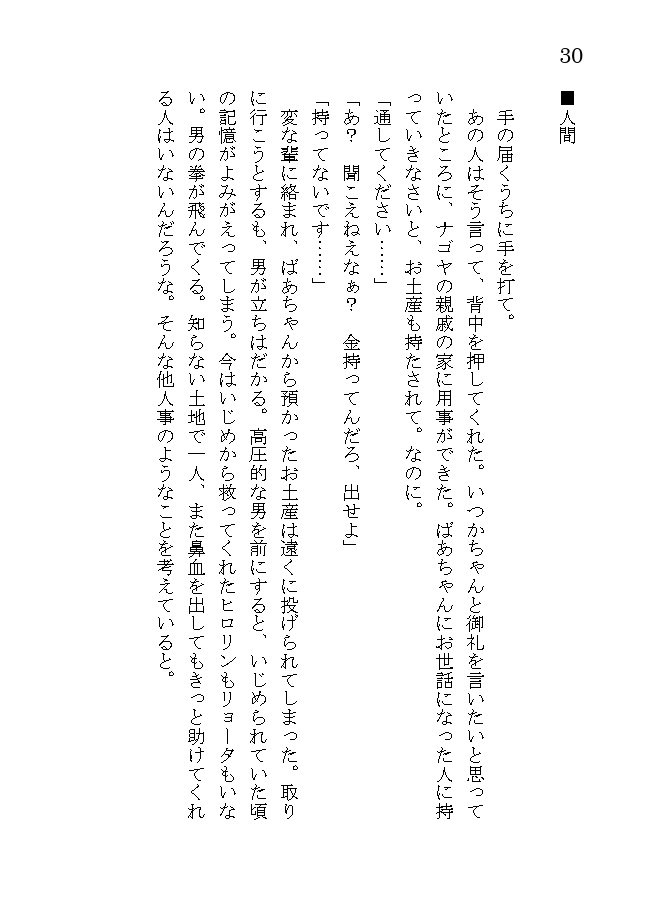 30
■人間
　手の届くうちに手を打て。
　あの人はそう言って、背中を押してくれた。いつかちゃんと御礼を言いたいと思って
いたところに、ナゴヤの親戚の家に用事ができた。ばあちゃんにお世話になった人に持
っていきなさいと、お土産も持たされて。なのに。
「通してください……」
「あ？　聞こえねえなぁ？　金持ってんだろ、出せよ」
「持ってないです……」
　変な輩に絡まれ、ばあちゃんから預かったお土産は遠くに投げられてしまった。取り
に行こうとするも、男が立ちはだかる。高圧的な男を前にすると、いじめられていた頃
の記憶がよみがえってしまう。今はいじめから救ってくれたヒロリンもリョータもいな
い。男の拳が飛んでくる。知らない土地で一人、また鼻血を出してもきっと助けてくれ
る人はいないんだろうな。そんな他人事のようなことを考えていると。